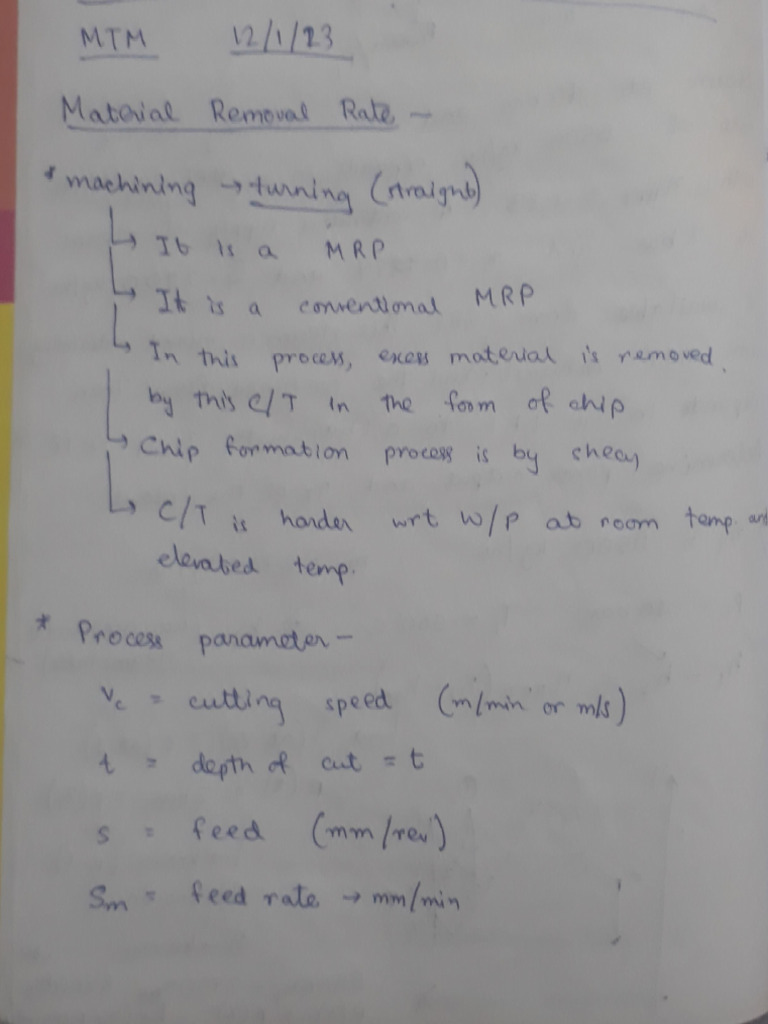 MTM 12/1/23
Material Removal Rate -
* machining → turning (straight)
↳ It is a MRP
↳ It is a conventional MRP
↳ In this process, exess material is removed
by this C/T in the form of chip
↳ Chip formation process is by shear
↳ C/T is harder wrt W/P at room temp. and
elevated temp.
* Process parameter -
Vc = cutting speed (m/min or m/s)
t = depth of cut = t
s = feed (mm/rev)
Sm = feed rate → mm/min